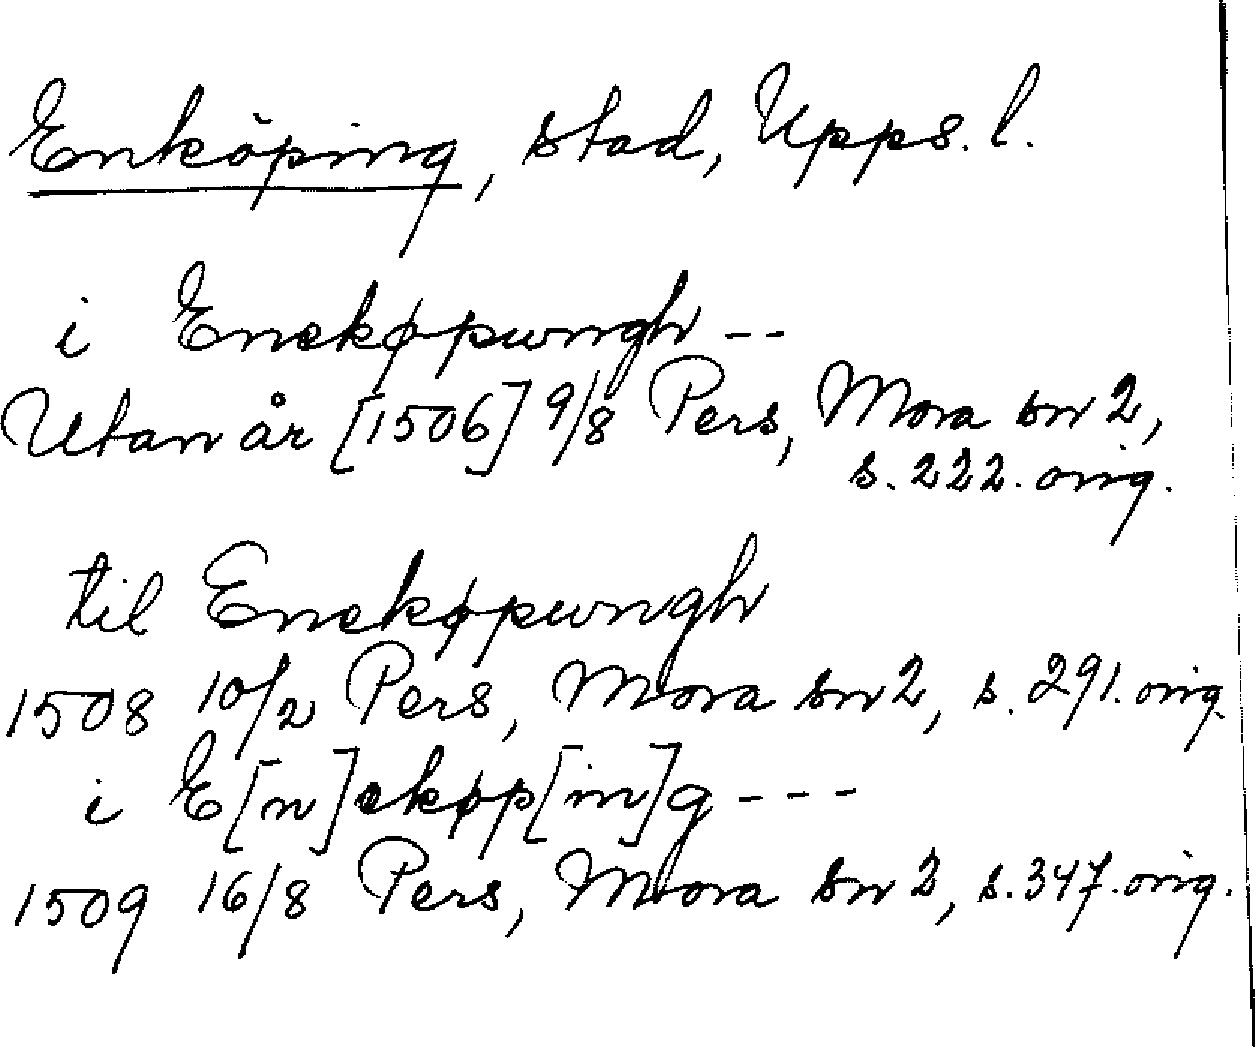 Enköping, stad, Upps. l.
i Enekøpungh --
Utan år [1506] 9/8 Pers, Mora sn 2,
s. 222. orig.
til Enekøpungh
1508 10/2 Pers, Mora sn 2, s. 291. orig.
i E[n]ekøp[in]g ---
1509 16/8 Pers, Mora sn 2, s. 347. orig.